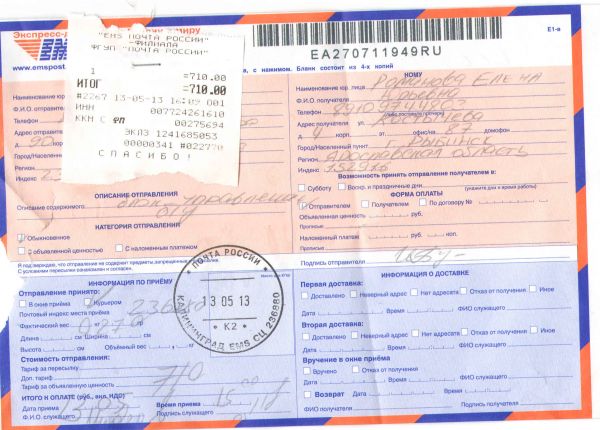 Экспресс-д
миру
E1-в
EMS
www.emspost
EA270711949RU
"EMS ПОЧТА РОССИИ"
-ФИЛИАЛА
ФГУП "ПОЧТА РОССИИ"
1 =710.00
ИТОГ =710.00
#2267 13-05-13 16:09 001
ИНН 007724261610
ККМ С ФП 00275694
ЭКЛЗ 1241685053
00000341 #022770
СПАСИБО!
с нажимом. Бланк состоит из 4-х копий
КОМУ
Наименование юр. лица Романова Елена
Ф.И.О. получателя Юрьевна
Телефон 89109744803
Адрес получателя ул.
д. 4 корп. офис/кв. 87 домофон
Город/Населенный пункт г. Рыбинск
Регион Ярославская область
Индекс
Возможность принять отправление получателем в:
Субботу Воскр. и праздничные дни (укажите дни и время работы)
ФОРМА ОПЛАТЫ
Отправителем Получателем По договору №
Объявленная ценность руб.
Прописью
Наложенный платеж руб. коп.
Прописью
Подпись отправителя
Наименование юр
Ф.И.О. отправи
Телефон
Адрес отправ
д.
Город/Населен
Регион
Индекс
ОПИСАНИЕ ОТПРАВЛЕНИЯ
Описание содержимого блок управления
КАТЕГОРИЯ ОТПРАВЛЕНИЯ
Обыкновенное
С объявленной ценностью С наложенным платежом
Я подтверждаю, что отправление не содержит предметы, запрещенные
С условиями пересылки ознакомлен и согласен.
ИНФОРМАЦИЯ ПО ПРИЁМУ
Отправление принято:
В окне приёма Курьером
Почтовый индекс места приёма
Фактический вес
Длина см Ширина см
Высота см Объёмный вес кг
Стоимость отправления:
Тариф за пересылку
Доп. тариф 710
Тариф за объявленную ценность
ИТОГО К ОПЛАТЕ (руб., вкл. НДС)
Дата приема Время
Ф.И.О. служащего
ПОЧТА РОССИИ
13 05 13
* К2 *
КАЛИНИНГРАД EMS СЦ 236880
ИНФОРМАЦИЯ О ДОСТАВКЕ
Первая доставка:
Доставлено Неверный адрес Нет адресата Отказ от получения Иное
Дата Время ФИО служащего
Вторая доставка:
Доставлено Неверный адрес Нет адресата Отказ от получения Иное
Дата Время ФИО служащего
Вручение в окне приёма
Вручено Отказ от получения
Дата Время ФИО служащего
Возврат Дата Время
ФИО получателя Подпись получателя